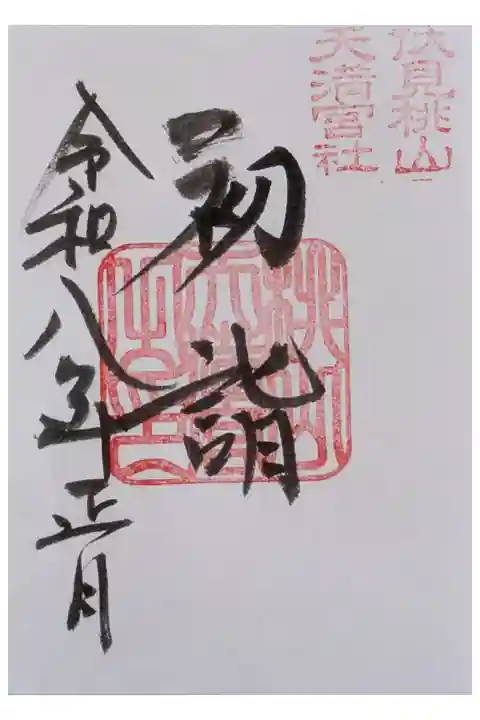 伏見桃山
天満宮社
初詣
令和八年正月